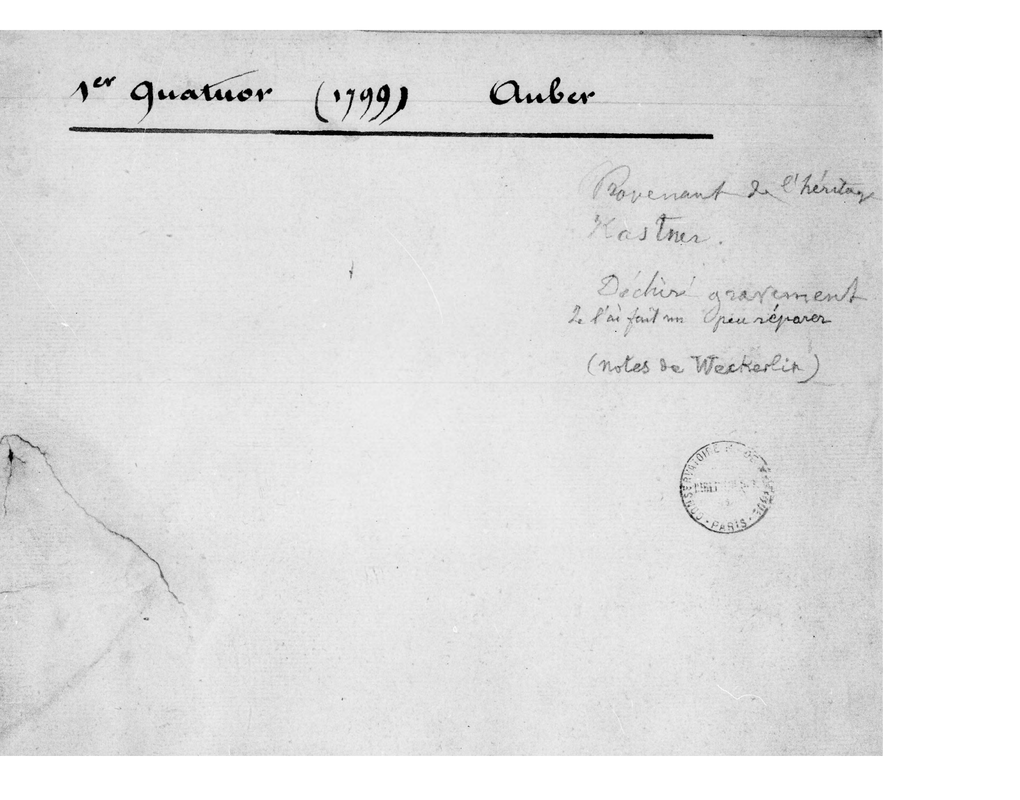 1er Quatuor (1799) Auber
Provenant de l'héritage
Kastner.
Déchiré gravement
Je l'ai fait un peu réparer
(notes de Weckerlin)
CONSERVATOIRE DE
PARIS